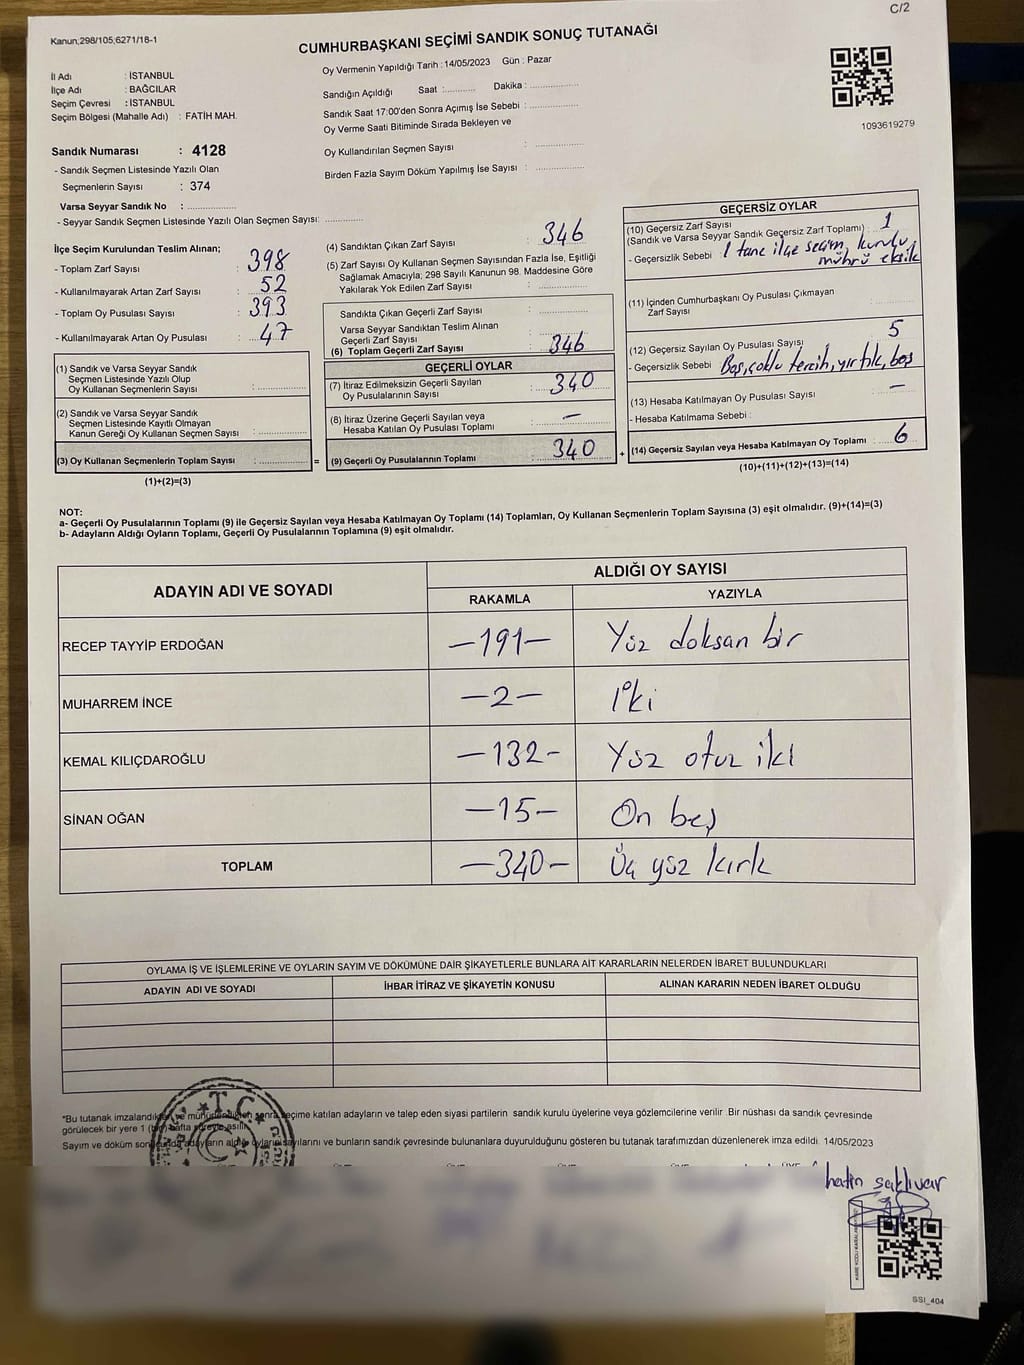 C/2
Kanun;298/105;6271/18-1
CUMHURBAŞKANI SEÇİMİ SANDIK SONUÇ TUTANAĞI
İl Adı : İSTANBUL
İlçe Adı : BAĞCILAR
Seçim Çevresi : İSTANBUL
Seçim Bölgesi (Mahalle Adı) : FATİH MAH.
Sandık Numarası : 4128
- Sandık Seçmen Listesinde Yazılı Olan
Seçmenlerin Sayısı : 374
Varsa Seyyar Sandık No : ....................
- Seyyar Sandık Seçmen Listesinde Yazılı Olan Seçmen Sayısı: ...............
Oy Vermenin Yapıldığı Tarih : 14/05/2023 Gün : Pazar
Sandığın Açıldığı Saat :............ Dakika : ....................
Sandık Saat 17:00'den Sonra Açımış İse Sebebi : ....................
Oy Verme Saati Bitiminde Sırada Bekleyen ve
Oy Kullandırılan Seçmen Sayısı : ....................
Birden Fazla Sayım Döküm Yapılmış İse Sayısı : ....................
1093619279
İlçe Seçim Kurulundan Teslim Alınan;
- Toplam Zarf Sayısı : 398
- Kullanılmayarak Artan Zarf Sayısı : 52
- Toplam Oy Pusulası Sayısı : 393
- Kullanılmayarak Artan Oy Pusulası : 47
(1) Sandık ve Varsa Seyyar Sandık
Seçmen Listesinde Yazılı Olup
Oy Kullanan Seçmenlerin Sayısı : ....................
(2) Sandık ve Varsa Seyyar Sandık
Seçmen Listesinde Kayıtlı Olmayan
Kanun Gereği Oy Kullanan Seçmen Sayısı : ....................
(3) Oy Kullanan Seçmenlerin Toplam Sayısı : ....................
(1)+(2)=(3)
(4) Sandıktan Çıkan Zarf Sayısı : 346
(5) Zarf Sayısı Oy Kullanan Seçmen Sayısından Fazla İse, Eşitliği
Sağlamak Amacıyla; 298 Sayılı Kanunun 98. Maddesine Göre
Yakılarak Yok Edilen Zarf Sayısı : ....................
Sandıkta Çıkan Geçerli Zarf Sayısı : ....................
Varsa Seyyar Sandıktan Teslim Alınan
Geçerli Zarf Sayısı : ....................
(6) Toplam Geçerli Zarf Sayısı : 346
GEÇERLİ OYLAR
(7) İtiraz Edilmeksizin Geçerli Sayılan
Oy Pusulalarının Sayısı : 340
(8) İtiraz Üzerine Geçerli Sayılan veya
Hesaba Katılan Oy Pusulası Toplamı : —
= (9) Geçerli Oy Pusulalarının Toplamı : 340
GEÇERSİZ OYLAR
(10) Geçersiz Zarf Sayısı
(Sandık ve Varsa Seyyar Sandık Geçersiz Zarf Toplamı) : 1
- Geçersizlik Sebebi 1 tane ilçe seçim kurulu
mührü eksik
(11) İçinden Cumhurbaşkanı Oy Pusulası Çıkmayan
Zarf Sayısı : ............
(12) Geçersiz Sayılan Oy Pusulası Sayısı : 5
- Geçersizlik Sebebi Boş, çoklu tercih, yırtık, boş
(13) Hesaba Katılmayan Oy Pusulası Sayısı : —
- Hesaba Katılmama Sebebi :
+ (14) Geçersiz Sayılan veya Hesaba Katılmayan Oy Toplamı : 6
(10)+(11)+(12)+(13)=(14)
NOT:
a- Geçerli Oy Pusulalarının Toplamı (9) ile Geçersiz Sayılan veya Hesaba Katılmayan Oy Toplamı (14) Toplamları, Oy Kullanan Seçmenlerin Toplam Sayısına (3) eşit olmalıdır. (9)+(14)=(3)
b- Adayların Aldığı Oyların Toplamı, Geçerli Oy Pusulalarının Toplamına (9) eşit olmalıdır.
ADAYIN ADI VE SOYADI ALDIĞI OY SAYISI
RAKAMLA YAZIYLA
RECEP TAYYİP ERDOĞAN —191— Yüz doksan bir
MUHARREM İNCE —2— İki
KEMAL KILIÇDAROĞLU —132— Yüz otuz iki
SİNAN OĞAN —15— On beş
TOPLAM —340— Üç yüz kırk
OYLAMA İŞ VE İŞLEMLERİNE VE OYLARIN SAYIM VE DÖKÜMÜNE DAİR ŞİKAYETLERLE BUNLARA AİT KARARLARIN NELERDEN İBARET BULUNDUKLARI
ADAYIN ADI VE SOYADI İHBAR İTİRAZ VE ŞİKAYETİN KONUSU ALINAN KARARIN NEDEN İBARET OLDUĞU
T.C.
*Bu tutanak imzalandıktan ve mühürlendikten sonra seçime katılan adayların ve talep eden siyasi partilerin sandık kurulu üyelerine veya gözlemcilerine verilir. Bir nüshası da sandık çevresinde
görülecek bir yere 1 (bir) hafta süreyle asılır.
Sayım ve döküm sonucunda adayların aldığı oyların sayılarını ve bunların sandık çevresinde bulunanlara duyurulduğunu gösteren bu tutanak tarafımızdan düzenlenerek imza edildi. 14/05/2023
SSI_404